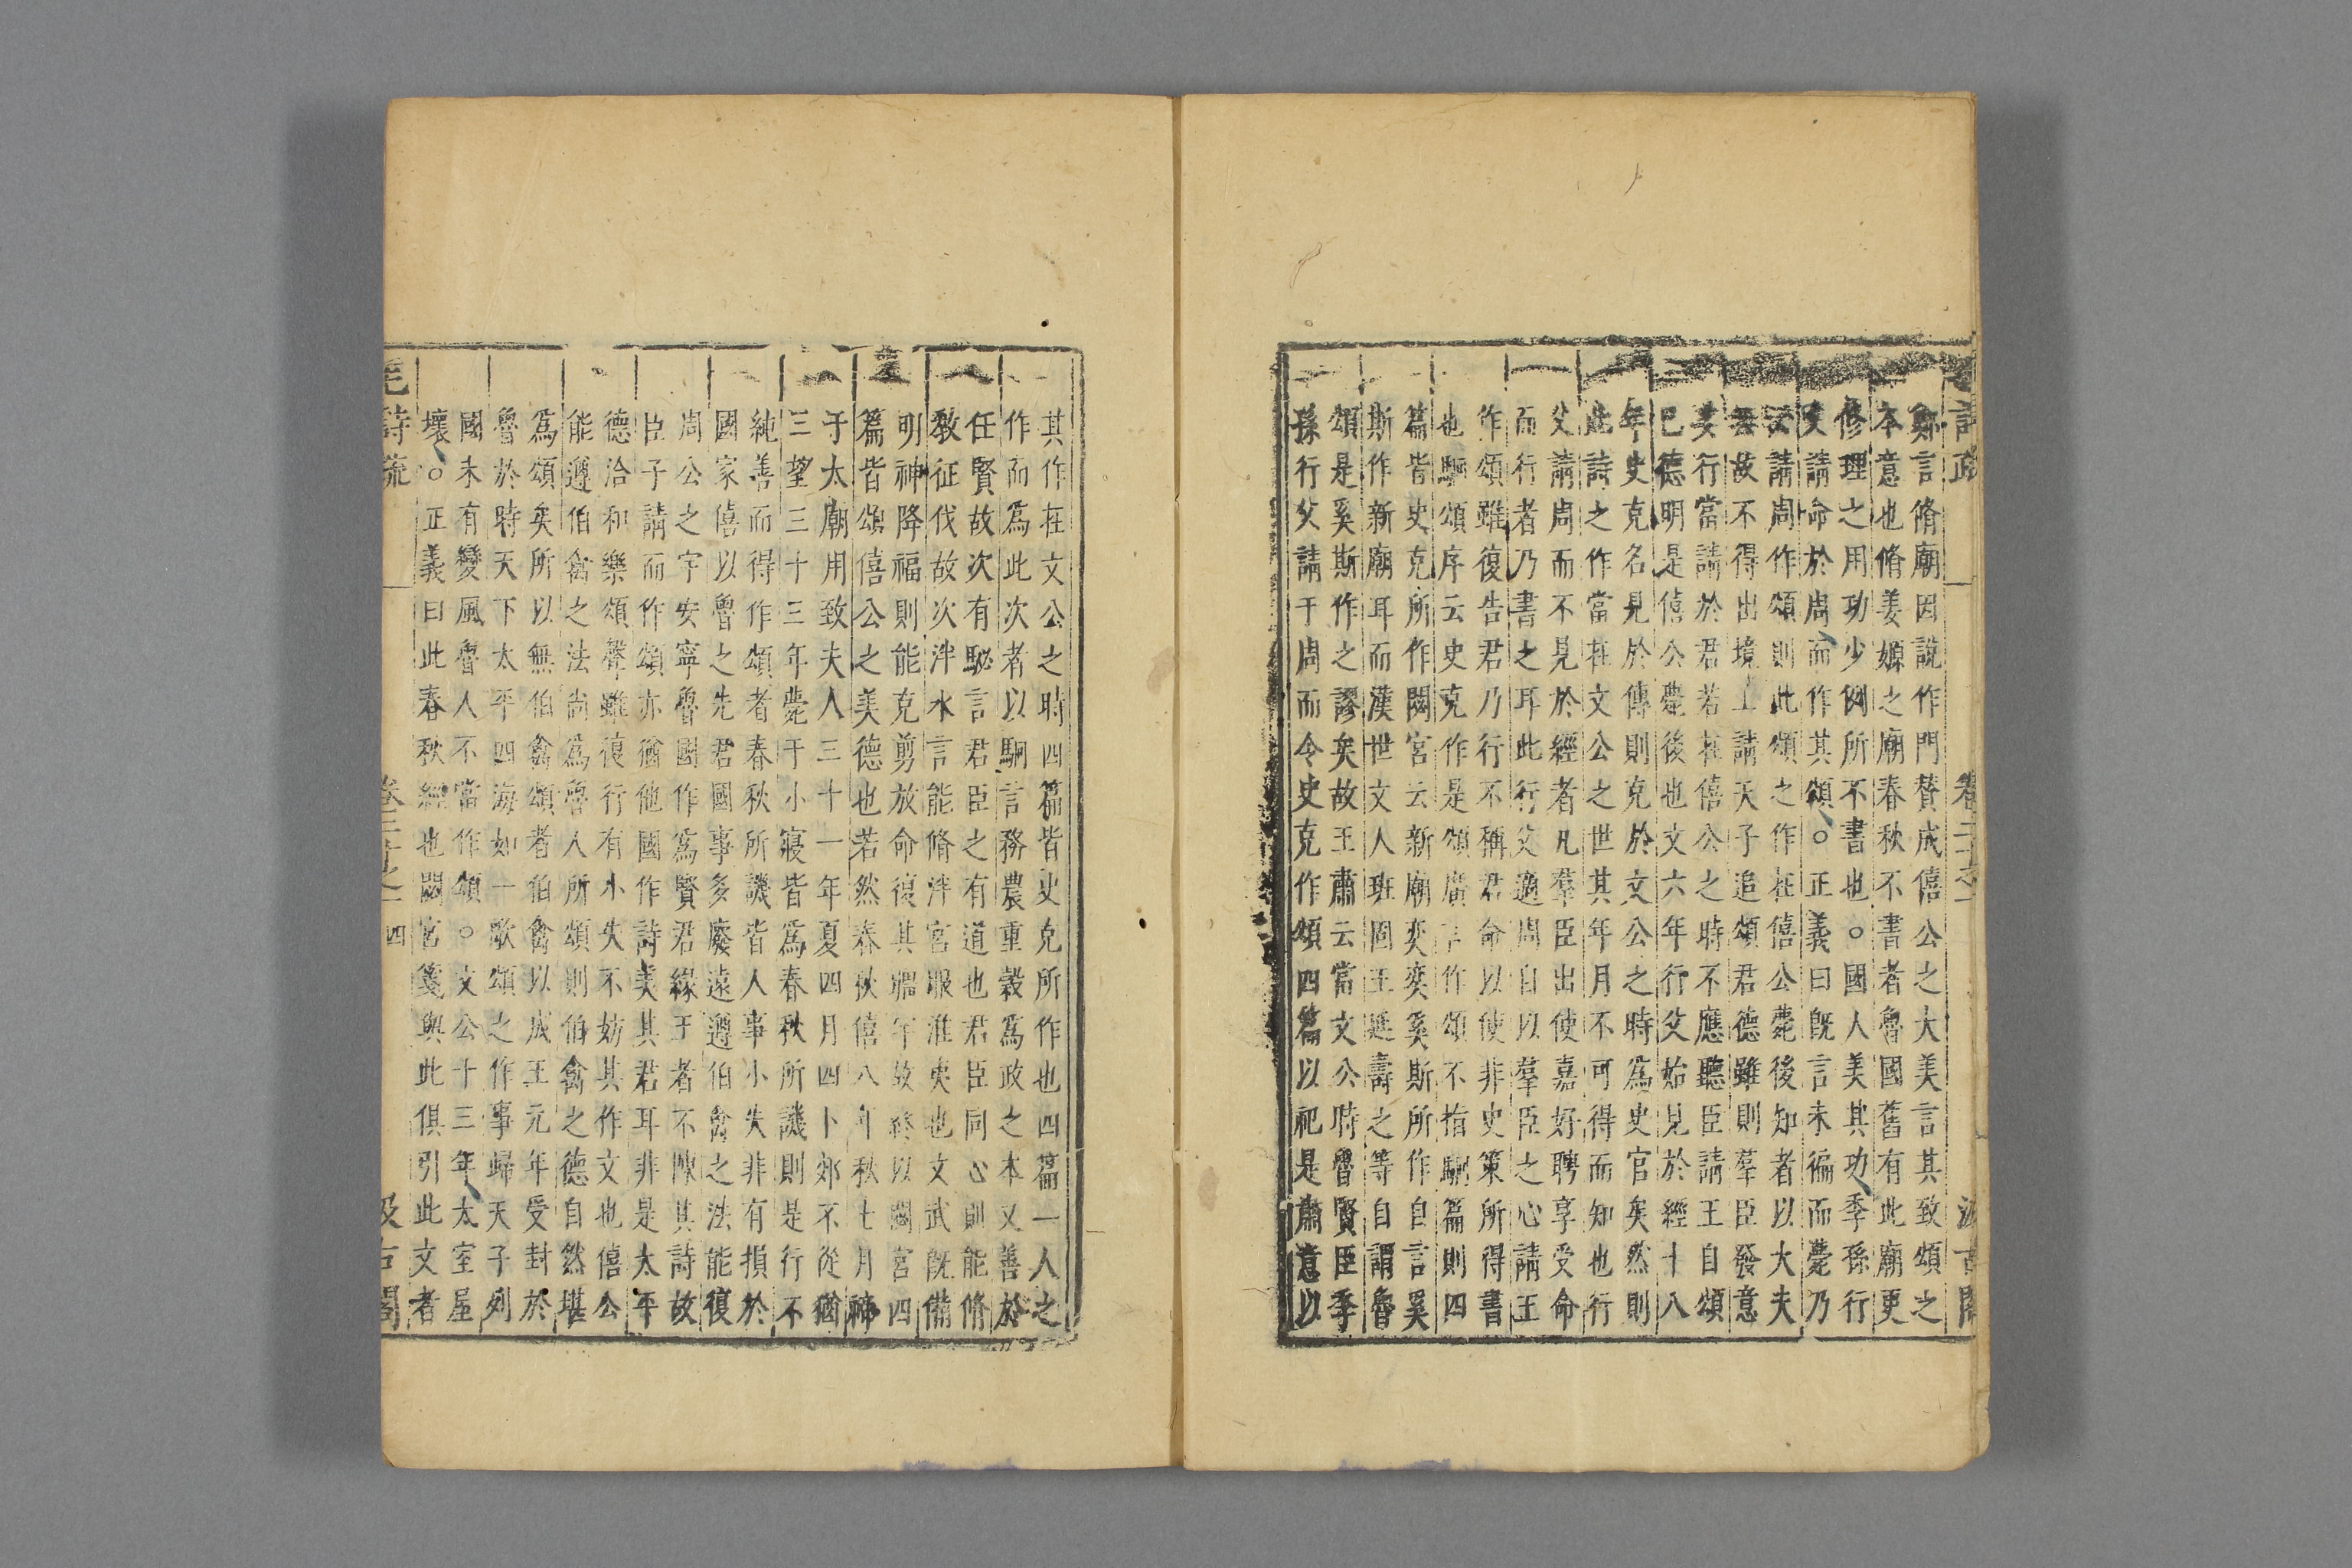 詩疏 卷二十之一 汲古閣
鄭言脩廟因說作門贊成僖公之大美言其致頌之
本意也脩姜嫄之廟春秋不書者魯國舊有此廟更
修理之用功少例所不書也○國人美其功季孫行
父請命於周而作其頌○正義曰旣言未徧而薨乃
云請周作頌則此頌之作在僖公薨後知者以大夫
無故不得出境上請天子追頌君德雖則羣臣發意
其行當請於君若在僖公之時不應聽臣請王自頌
巳德明是僖公薨後也文六年行父始見於經十八
年史克名見於傳則克於文公之時爲史官矣然則
此詩之作當在文公之世其年月不可得而知也行
父請周而不見於經者凡羣臣出使嘉好聘享受命
而行者乃書之耳此行父適周自以羣臣之心請王
作頌雖復告君乃行不稱君命以使非史策所得書
也駉頌序云史克作是頌廣言作頌不指駉篇則四
篇皆史克所作閟宮云新廟奕奕奚斯所作自言奚
斯作新廟耳而漢世文人班固王延壽之等自謂魯
頌是奚斯作之謬矣故王肅云當文公時魯賢臣季
孫行父請于周而令史克作頌四篇以祀是肅意以
其作在文公之時四篇皆史克所作也四篇一人之
作而爲此次者以駉言務農重穀爲政之本又善於
任賢故次有駜言君臣之有道也君臣同心則能脩
敎征伐故次泮水言能脩泮宮服淮夷也文武旣備
明神降福則能克剪放命復其疆宇故終以閟宮四
篇皆頌僖公之美德也若然春秋僖八年秋七月禘
于太廟用致夫人三十一年夏四月四卜郊不從猶
三望三十三年薨于小寢皆爲春秋所譏則是行不
純善而得作頌者春秋所譏皆人事小失非有損於
國家僖以魯之先君國事多廢遠遵伯禽之法能復
周公之宇安寧魯國作爲賢君緣王者不陳其詩故
臣子請而作頌亦猶他國作詩美其君耳非是太平
德洽和樂頌聲雖復行有小失不妨其作文也僖公
能遵伯禽之法尚爲魯人所頌則伯禽之德自然堪
爲頌矣所以無伯禽頌者伯禽以成王元年受封於
魯於時天下太平四海如一歌頌之作事歸天子列
國未有變風魯人不當作頌○文公十三年太室屋
壞○正義曰此春秋經也閟宮箋與此俱引此文者
毛詩疏 卷二十之一 四 汲古閣